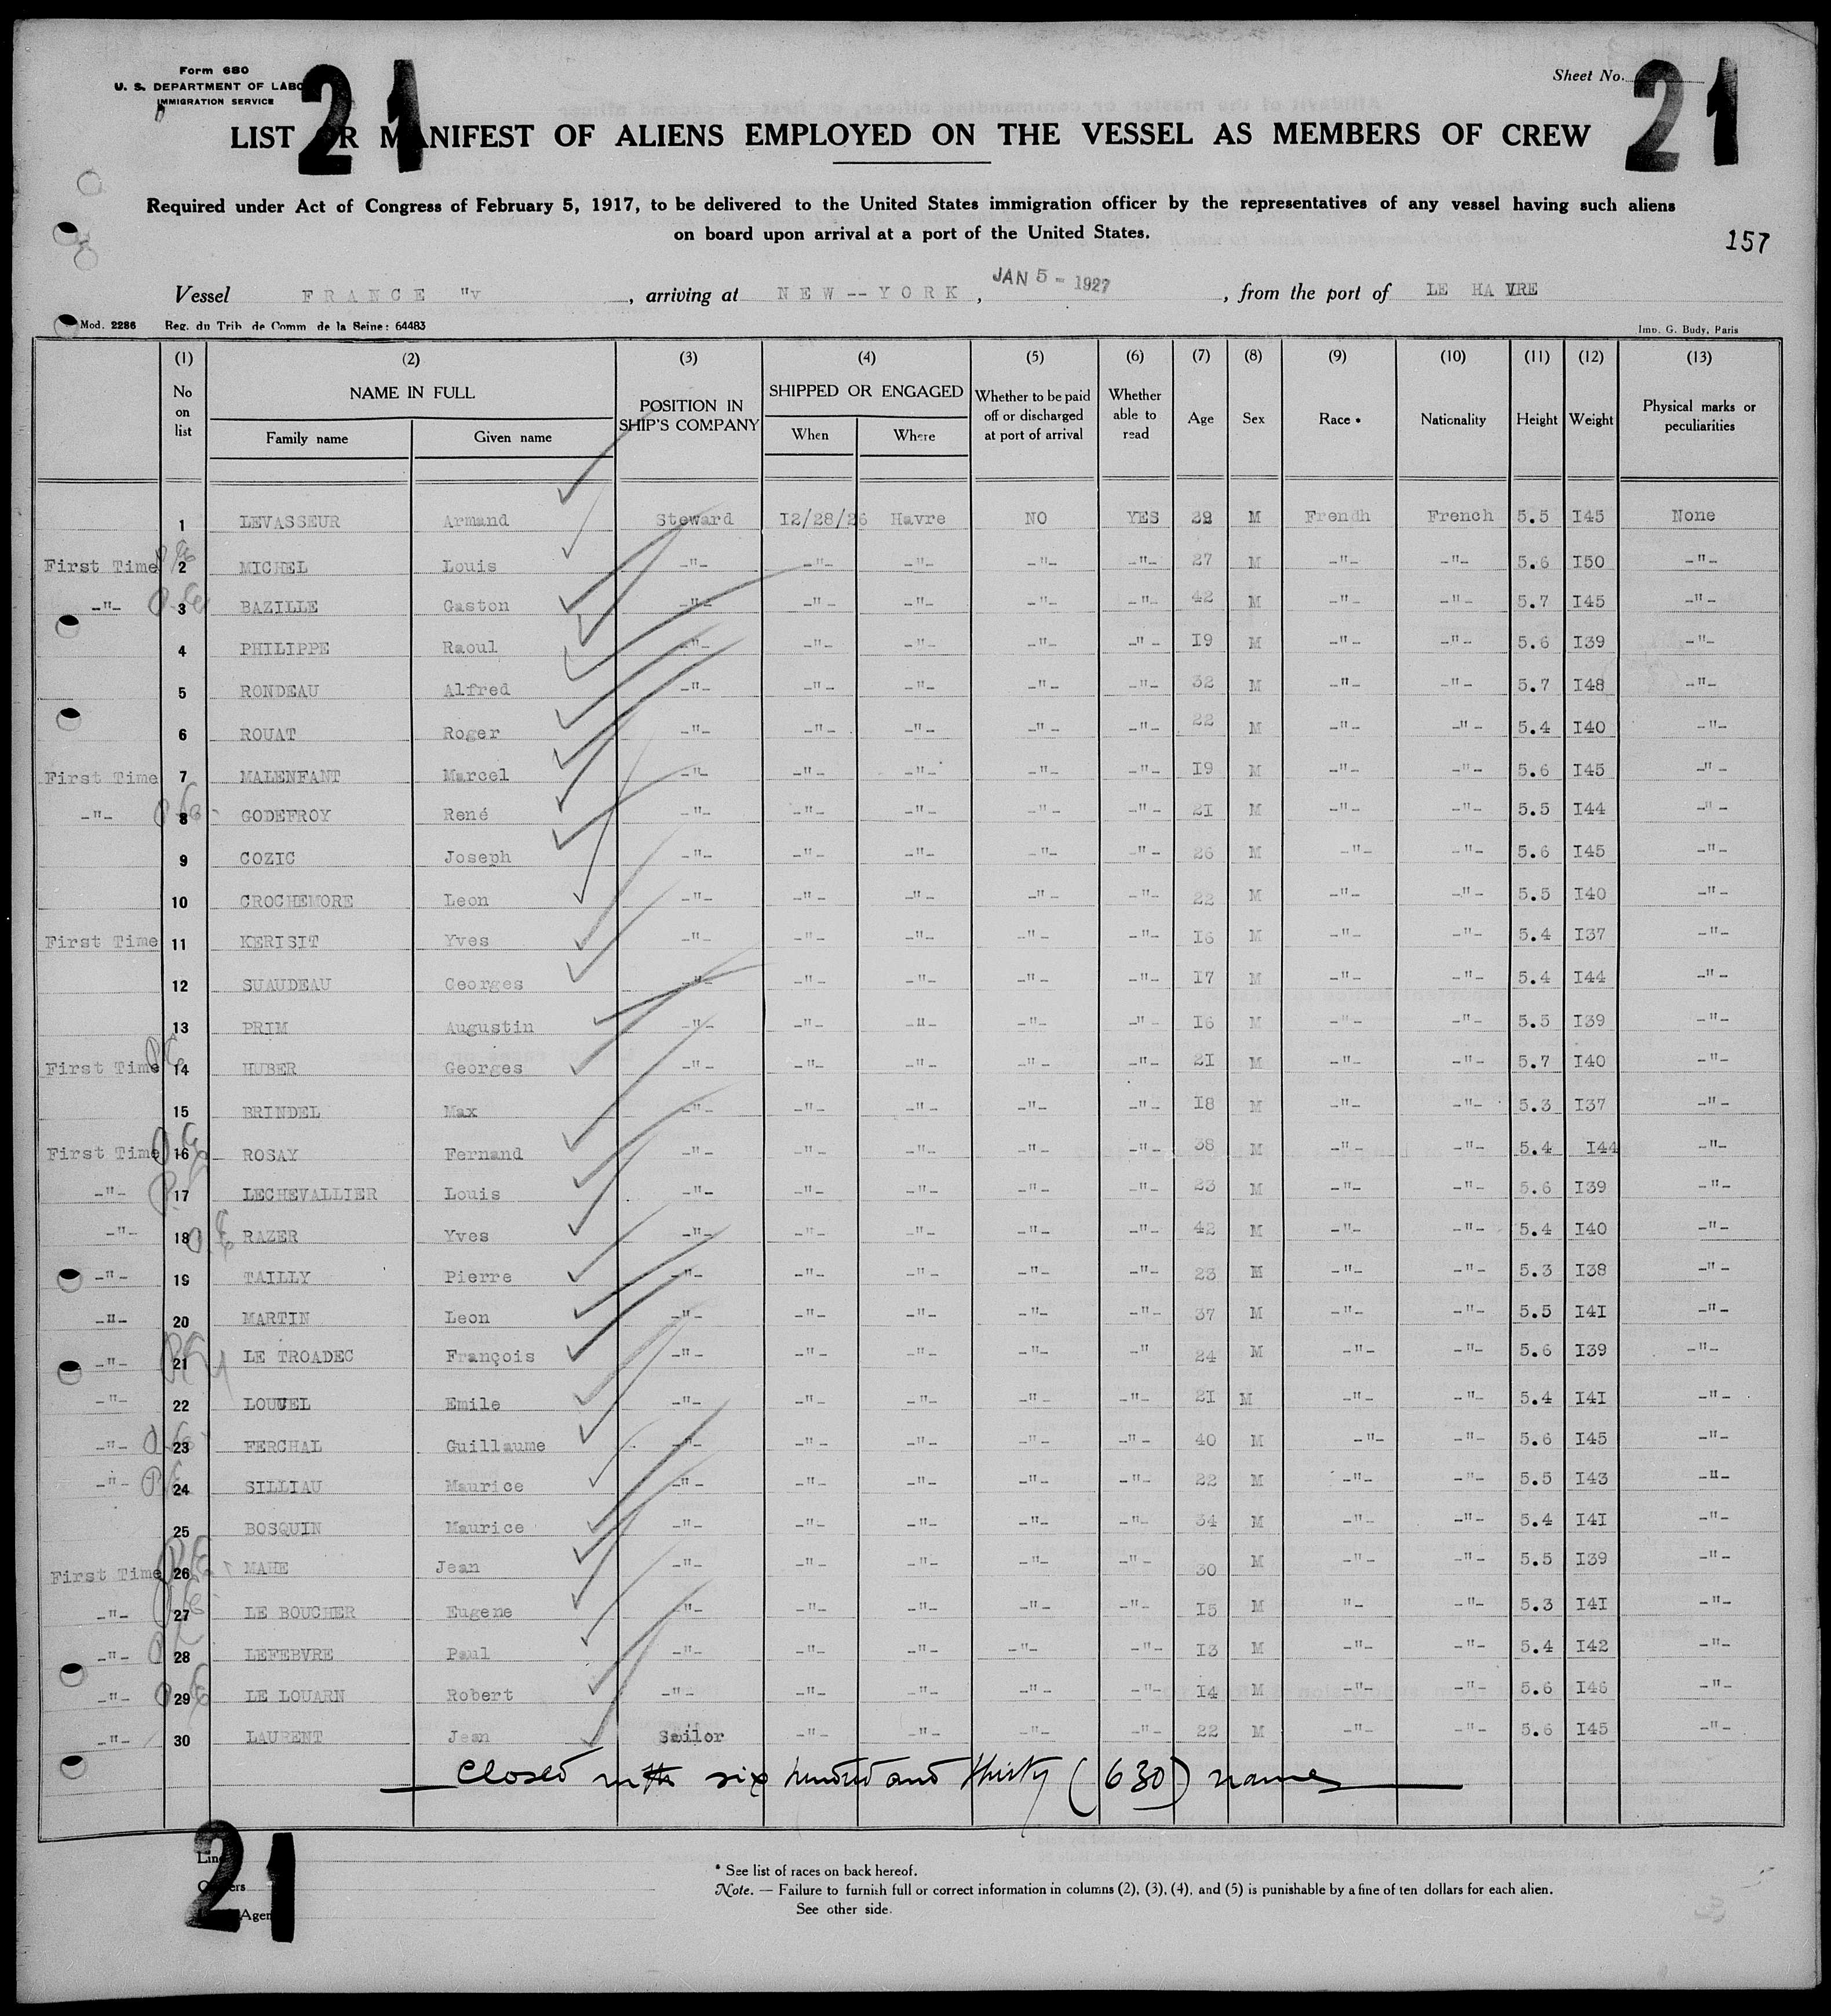 Form 680
U. S. DEPARTMENT OF LABO
IMMIGRATION SERVICE
21
Sheet No.
21
LIST OR MANIFEST OF ALIENS EMPLOYED ON THE VESSEL AS MEMBERS OF CREW
Required under Act of Congress of February 5, 1917, to be delivered to the United States immigration officer by the representatives of any vessel having such aliens
on board upon arrival at a port of the United States.
157
Vessel FRANCE "V , arriving at NEW--YORK , JAN 5 - 1927 , from the port of LE HAVRE
Mod. 2286 Reg. du Trib. de Comm. de la Seine: 64483 Imp. G. Budy, Paris
(1) (2) (3) (4) (5) (6) (7) (8) (9) (10) (11) (12) (13)
No on list NAME IN FULL Family name Given name POSITION IN SHIP'S COMPANY SHIPPED OR ENGAGED When Where Whether to be paid off or discharged at port of arrival Whether able to read Age Sex Race * Nationality Height Weight Physical marks or peculiarities
1 LEVASSEUR Armand Steward I2/28/26 Havre NO YES 29 M Frendh French 5.5 I45 None
First Time 2 MICHEL Louis -"- -"- -"- -"- -"- 27 M -"- -"- 5.6 I50 -"-
-"- 3 BAZILLE Gaston -"- -"- -"- -"- -"- 42 M -"- -"- 5.7 I45 -"-
4 PHILIPPE Raoul -"- -"- -"- -"- -"- I9 M -"- -"- 5.6 I39 -"-
5 RONDEAU Alfred -"- -"- -"- -"- -"- 32 M -"- -"- 5.7 I48 -"-
6 ROUAT Roger -"- -"- -"- -"- -"- 22 M -"- -"- 5.4 I40 -"-
First Time 7 MALENFANT Marcel -"- -"- -"- -"- -"- I9 M -"- -"- 5.6 I45 -"-
-"- 8 GODEFROY René -"- -"- -"- -"- -"- 2I M -"- -"- 5.5 I44 -"-
9 COZIC Joseph -"- -"- -"- -"- -"- 26 M -"- -"- 5.6 I45 -"-
10 CROCHEMORE Leon -"- -"- -"- -"- -"- 22 M -"- -"- 5.5 I40 -"-
First Time 11 KERISIT Yves -"- -"- -"- -"- -"- I6 M -"- -"- 5.4 I37 -"-
12 SUAUDEAU Georges -"- -"- -"- -"- -"- I7 M -"- -"- 5.4 I44 -"-
13 PRIM Augustin -"- -"- -"- -"- -"- I6 M -"- -"- 5.5 I39 -"-
First Time 14 HUBER Georges -"- -"- -"- -"- -"- 2I M -"- -"- 5.7 I40 -"-
15 BRINDEL Max -"- -"- -"- -"- -"- I8 M -"- -"- 5.3 I37 -"-
First Time 16 ROSAY Fernand -"- -"- -"- -"- -"- 38 M -"- -"- 5.4 I44 -"-
-"- 17 LECHEVALLIER Louis -"- -"- -"- -"- -"- 23 M -"- -"- 5.6 I39 -"-
-"- 18 RAZER Yves -"- -"- -"- -"- -"- 42 M -"- -"- 5.4 I40 -"-
-"- 19 TAILLY Pierre -"- -"- -"- -"- -"- 23 M -"- -"- 5.3 I38 -"-
-"- 20 MARTIN Leon -"- -"- -"- -"- -"- 37 M -"- -"- 5.5 I4I -"-
-"- 21 LE TROADEC François -"- -"- -"- -"- -" 24 M -"- -"- 5.6 I39 -"-
-"- 22 LOUVEL Emile -"- -"- -"- -"- -"- 2I M -"- -"- 5.4 I4I -"-
-"- 23 FERCHAL Guillaume -"- -"- -"- -"- -"- 40 M -"- -"- 5.6 I45 -"-
-"- 24 SILLIAU Maurice -"- -"- -"- -"- -"- 22 M -"- -"- 5.5 I43 -"-
25 BOSQUIN Maurice -"- -"- -"- -"- -"- 34 M -"- -"- 5.4 I4I -"-
First Time 26 MAHE Jean -"- -"- -"- -"- -"- 30 M -"- -"- 5.5 I39 -"-
-"- 27 LE BOUCHER Eugene -"- -"- -"- -"- -"- I5 M "- -"- 5.3 I4I -"-
-"- 28 LEFEBVRE Paul -"- -"- -"- -"- -"- I3 M -"- -"- 5.4 I42 -"-
-"- 29 LE LOUARN Robert -"- -"- -"- -"- -"- I4 M -"- -"- 5.6 I46 -"-
-"- 30 LAURENT Jean Sailor -"- -"- -"- -"- 22 M -"- -"- 5.6 I45 -"-
closed with six hundred and thirty (630) names
21
Line
Owners
Agen
* See list of races on back hereof.
Note. — Failure to furnish full or correct information in columns (2), (3), (4), and (5) is punishable by a fine of ten dollars for each alien.
See other side.